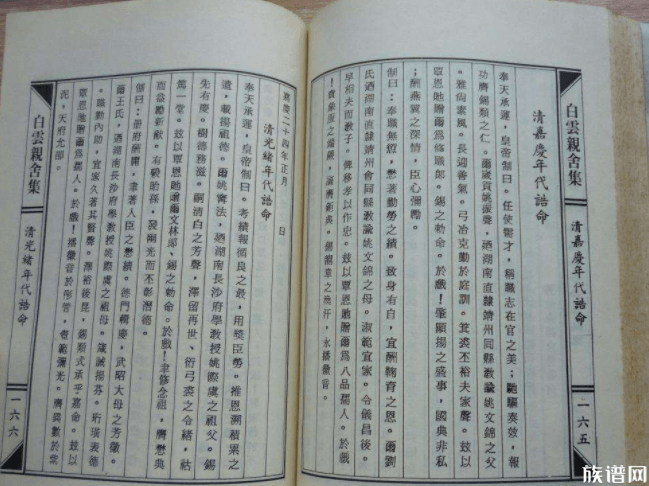 白雲親舍集
清嘉慶年代誥命
一六五
清嘉慶年代誥命
奉天承運，皇帝制曰。任使需才，稱職志在官之美；馳驅奏效，報
功膺錫類之仁。爾歲貢姚振聲，迺湖南直隸靖州會同縣教諭姚文錦之父
。雅尚素風。長迎善氣。弓冶克勤於庭訓。箕裘丕裕夫家聲。茲以
覃恩貤贈爾爲修職郎。錫之勅命。於戲！肇顯揚之盛事，國典非私
；酬燕翼之深情，臣心彌勵。
制曰：奉職無愆，懋著勤勞之績。致身有自，宜酬鞠育之恩。爾劉
氏迺湖南直隸靖州會同縣教諭姚文錦之母。淑範宜家。令儀昌後。
早相夫而教子。俾移孝以作忠。茲以覃恩貤贈爾爲八品孺人。於戲
！賁象服之端嚴，誕膺鉅典。錫龍章之渙汗，永播徽音。
嘉慶二十四年正月　日
清光緒年代誥命
奉天承運，皇帝制曰。考績報循良之最，用獎臣勞。推恩溯積累之
遺，載揚祖德。爾姚甯法，迺湖南長沙府學教授姚際虞之祖父。錫
先有慶。樹德務滋。嗣清白之芳聲，澤留再世。衍弓裘之令緒，祜
篤一堂。茲以覃恩貤贈爾文林郎、錫之勅命。於戲！聿修念祖，膺懋典
而益勵新猷。有穀貽孫，發幽光而丕彰潛德。
制曰：册府酬庸，聿著人臣之懋績。德門輯慶，式昭大母之芳徽。
爾王氏，迺湖南長沙府學教授姚際虞之祖母。箴誡揚芬。珩璜表德
。職勤內助，宜家久著其賢聲。澤裕後昆，錫類式承乎嘉命。茲以
覃恩貤贈爾爲孺人。於戲！播徽音於彤管，壼範彌光。膺異數於紫
泥，天府允卲。
白雲親舍集
清光緒年代誥命
一六六
族谱网